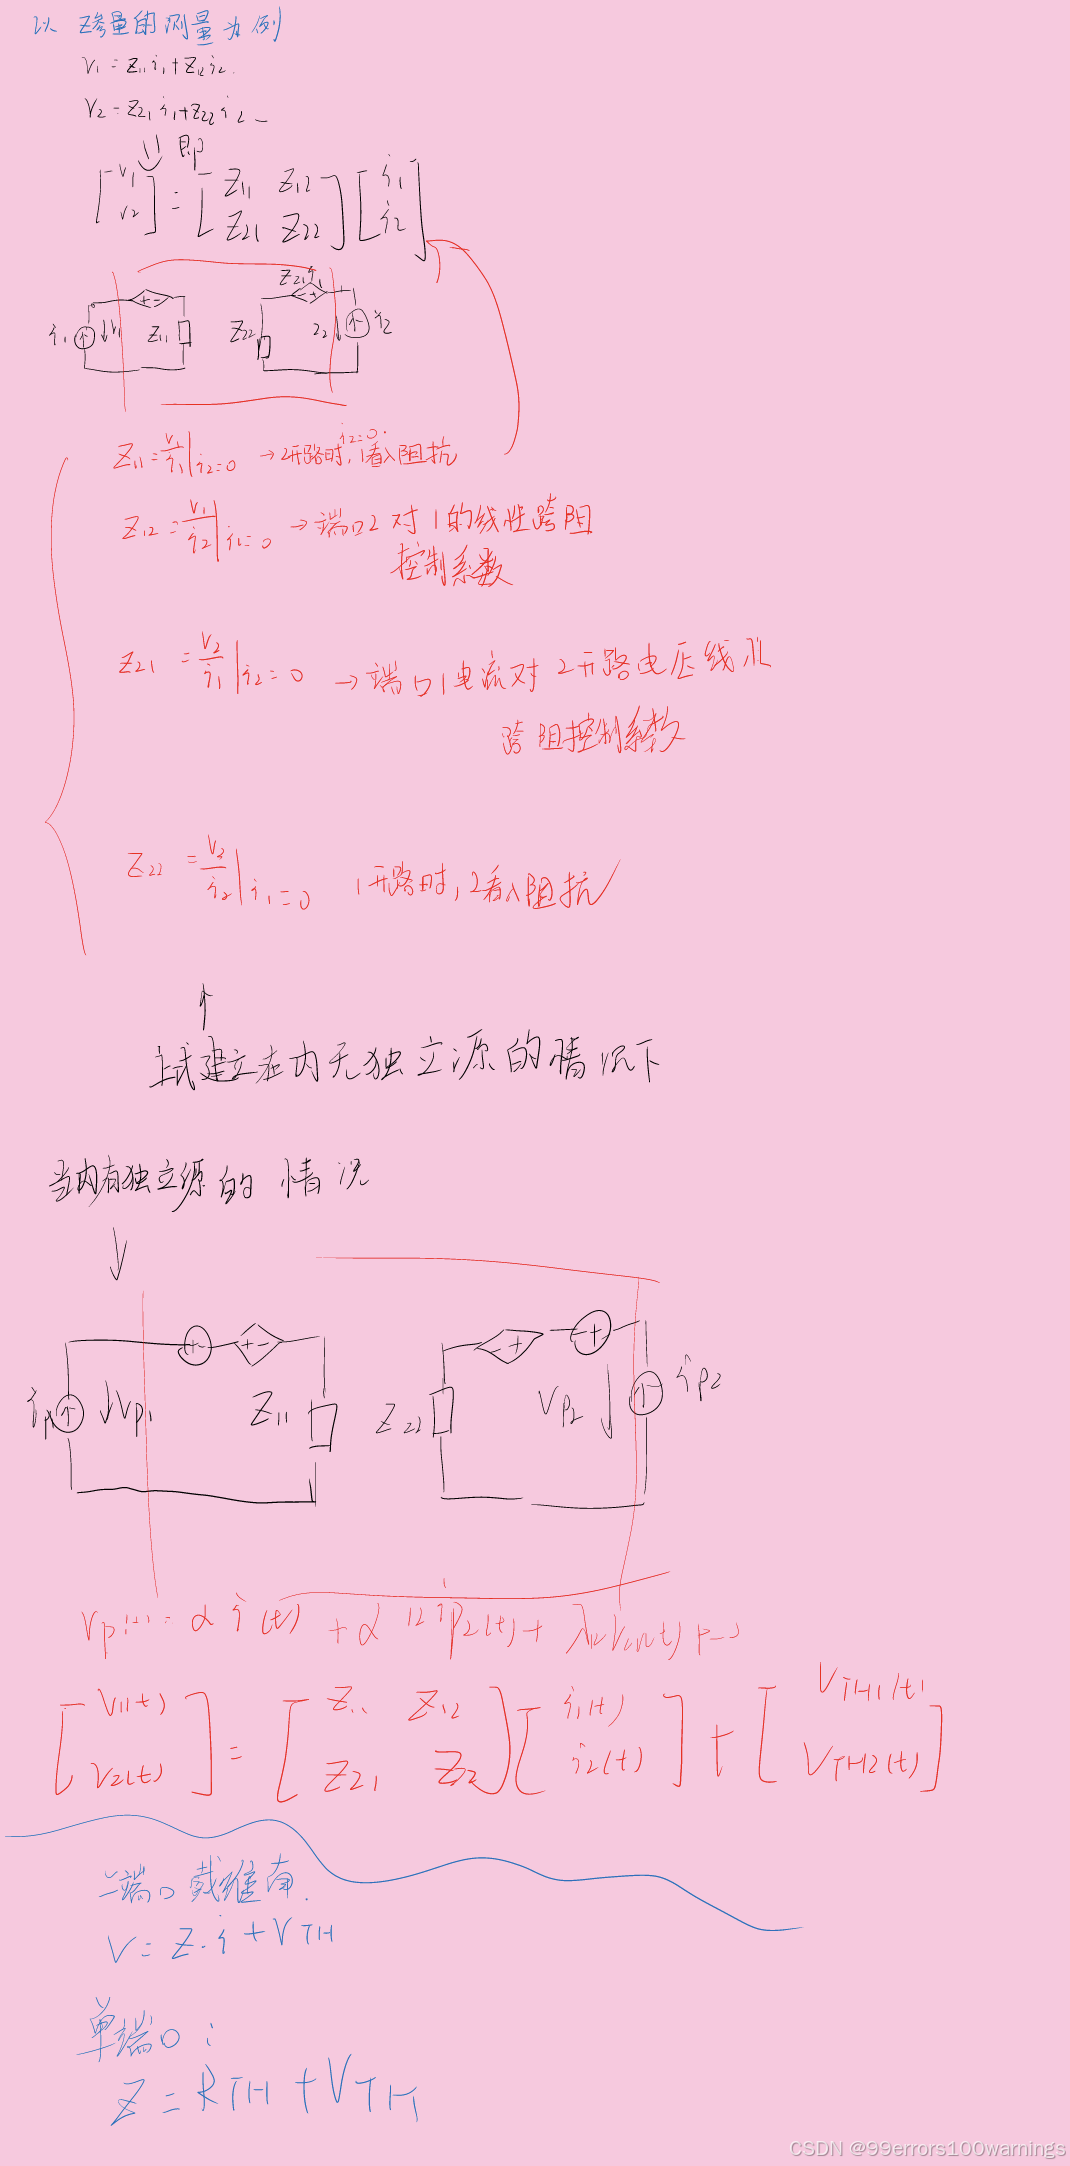 以 Z参量的测量为例
V1 = Z11 i1 + Z12 i2.
V2 = Z21 i1 + Z22 i2
即
[V1 V2] = [Z11 Z12 Z21 Z22] [i1 i2]
Z21 i1
i1 V1 Z11 Z22 i2
Z11 = V1/i1 | i2=0 → 2开路时, 1看入阻抗
i2=0.
Z12 = V1/i2 | i1=0 → 端口2 对 1 的线性跨阻
控制系数
Z21 = V2/i1 | i2=0 → 端口1电流对 2开路电压线性
跨阻控制系数
Z22 = V2/i2 | i1=0 1开路时, 2看入阻抗
↑
上式建立在内无独立源的情况下
当内有独立源的 情况
↓
ip1 Vp1 Z11 Z22 Vp2 ip2
[V1(t) V2(t)] = [Z11 Z12 Z21 Z22] [i1(t) i2(t)] + [VTH1(t) VTH2(t)]
二端口戴维南.
V = Z.i + VTH
单端口:
Z = RTH + VTH
CSDN @99errors100warnings